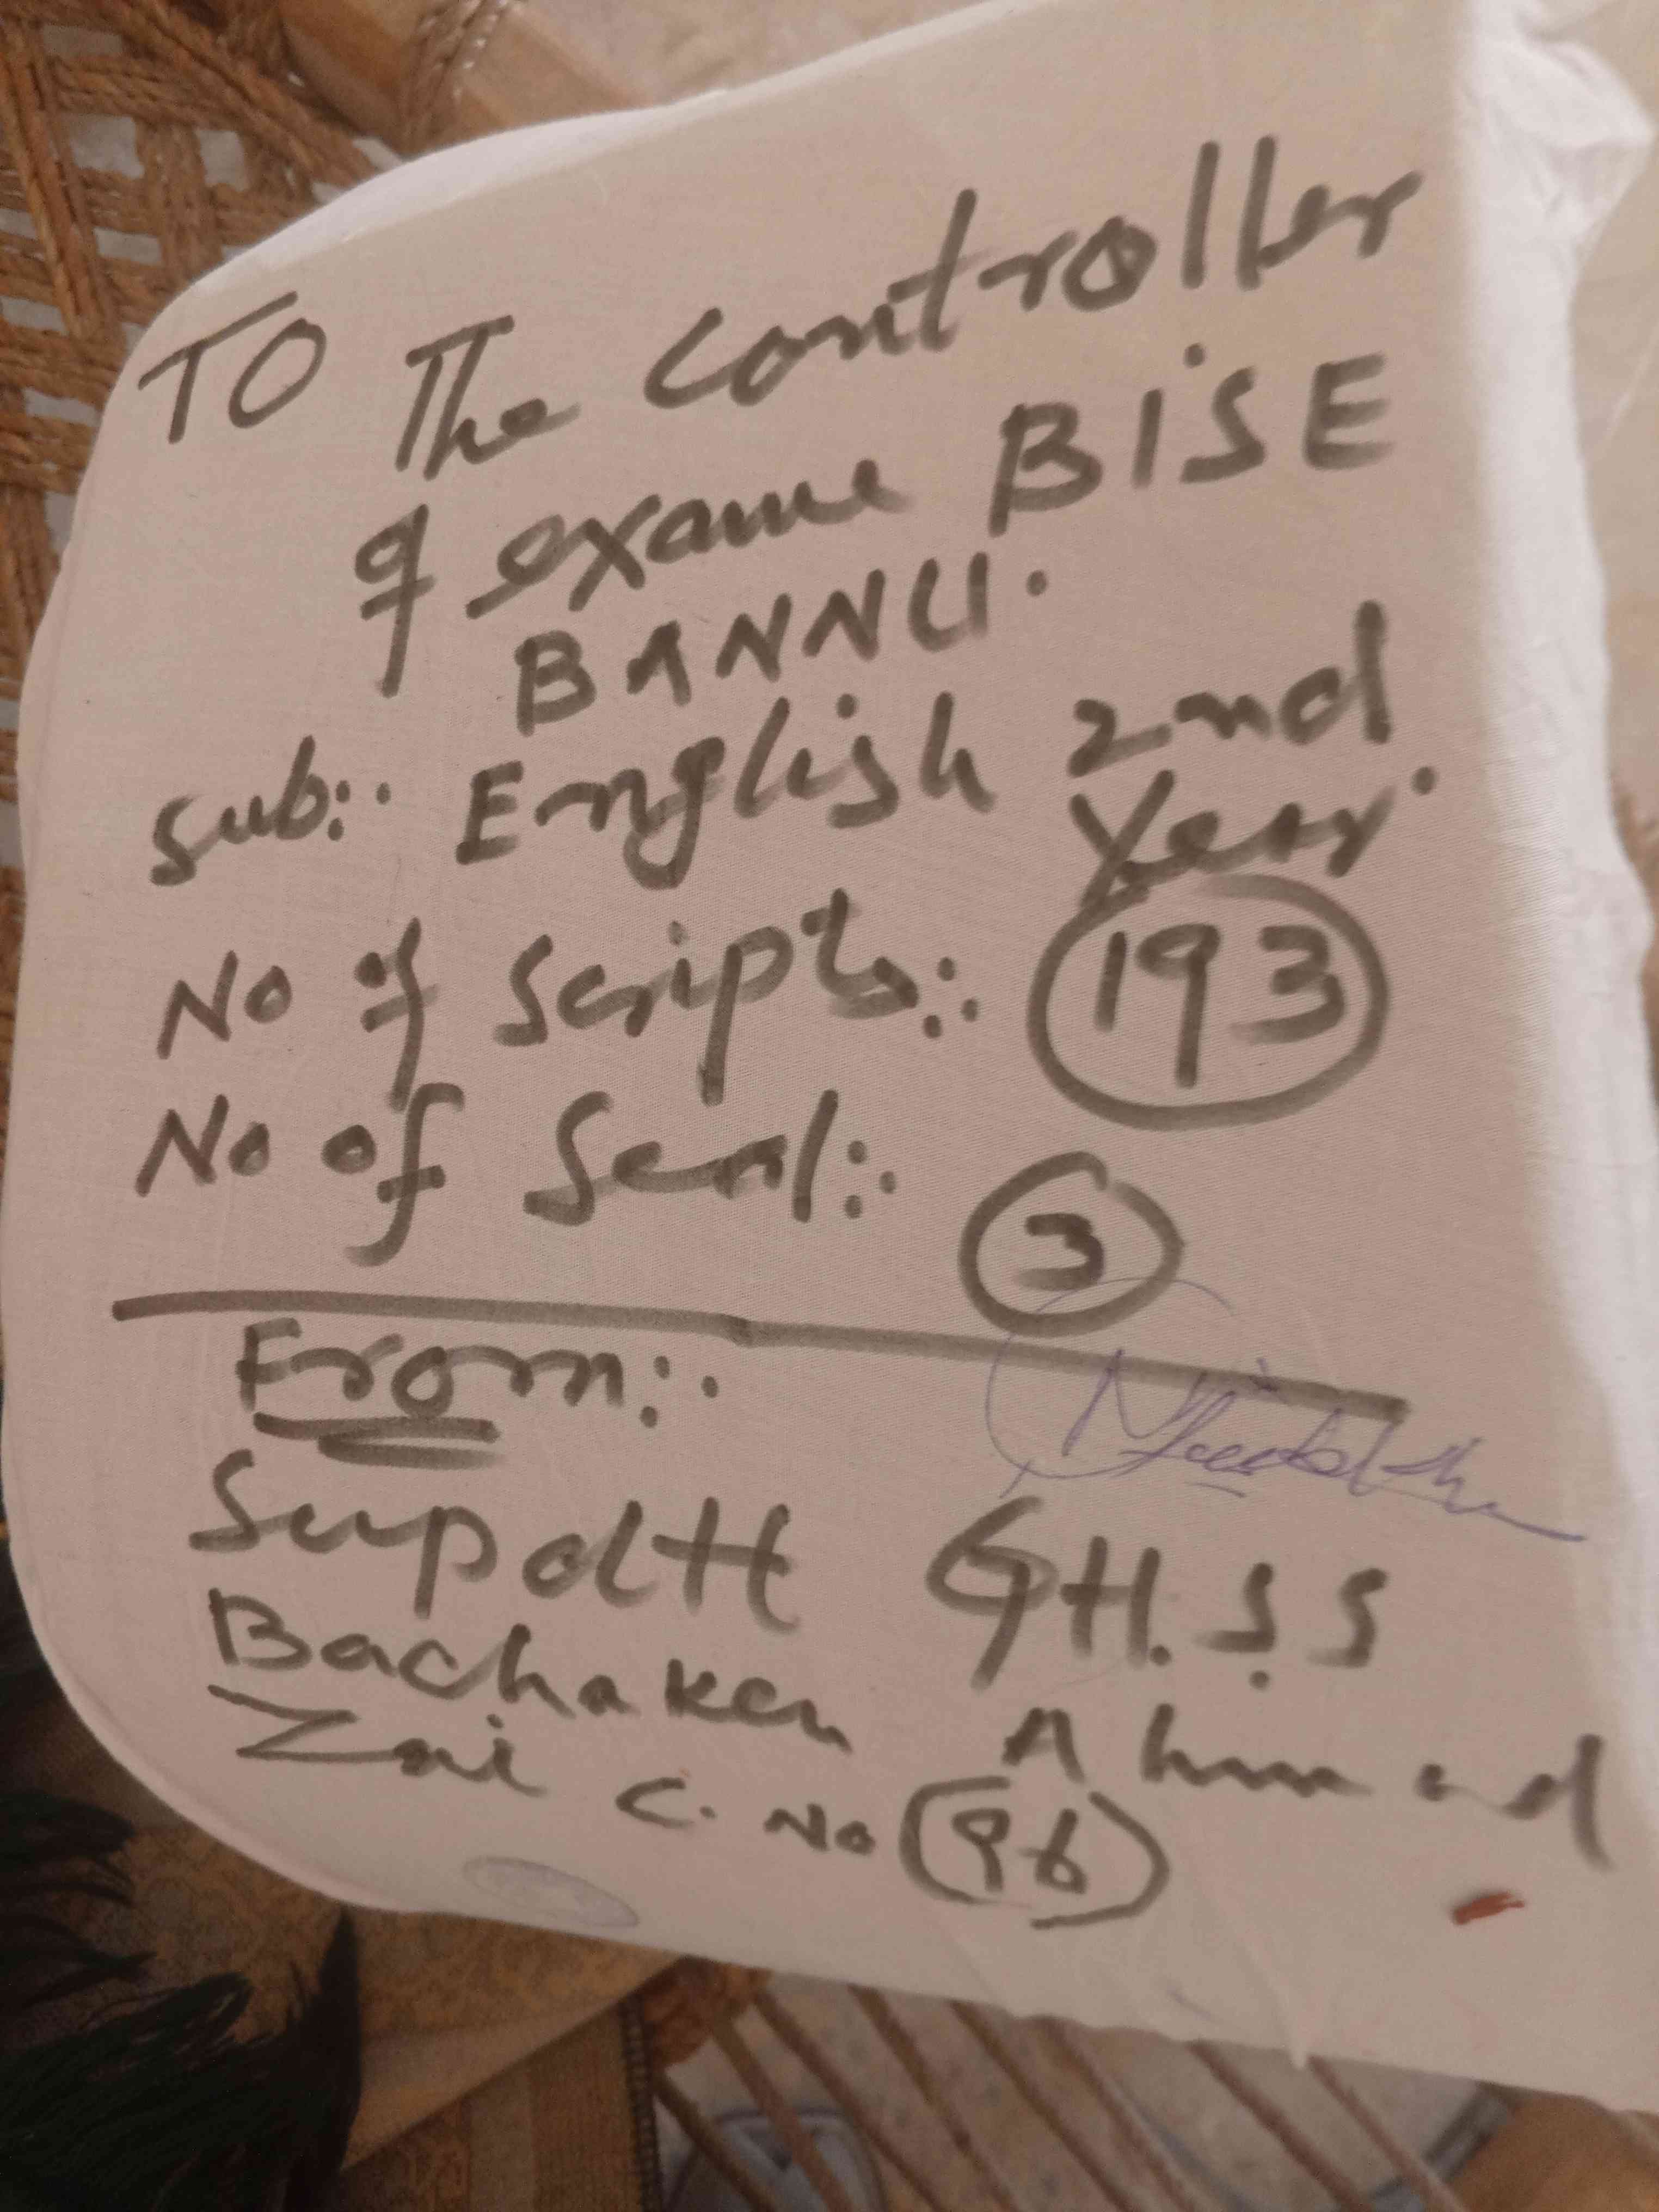 TO The controller
of exame BISE
BANNU.
Sub:. English 2nd
Year.
No of Scripts:. 193
No of Seal:. 3
From:.
Supdtt G.H.SS
Bachaken Ahmad
Zai C. No 96